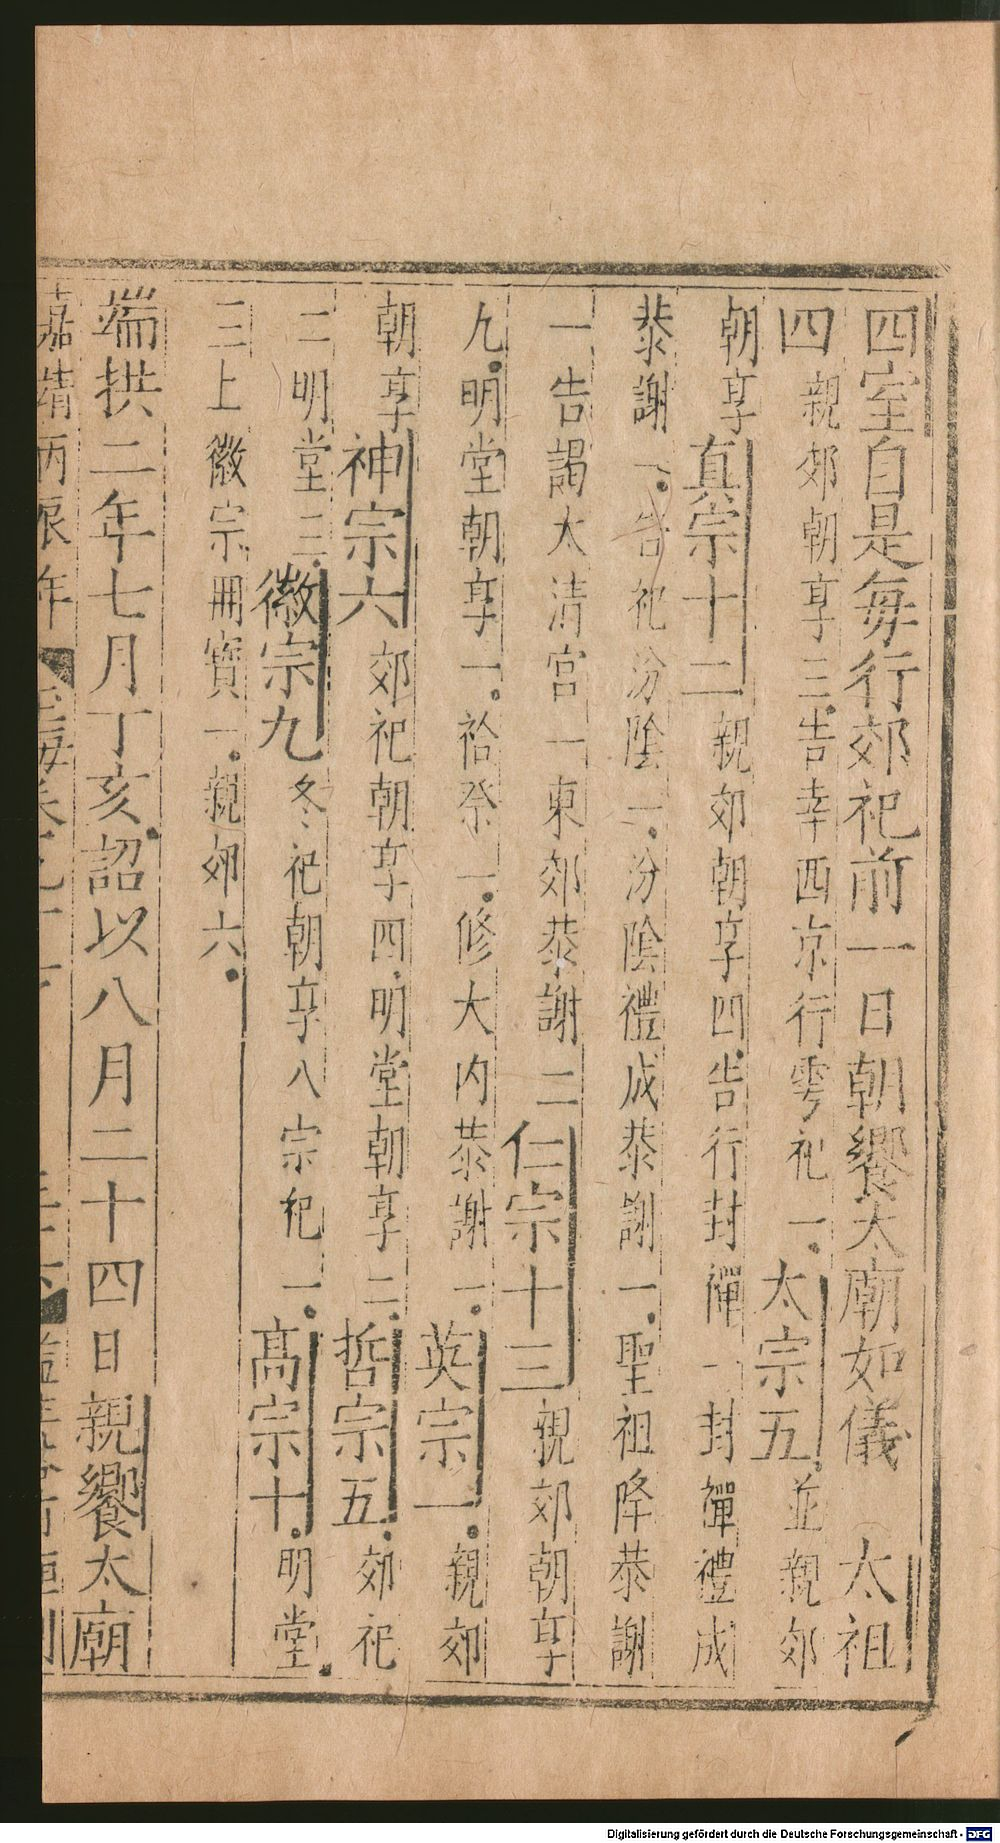 四室自是每行郊祀前一日朝饗太廟如儀　太祖
四親郊朝享三告幸西京行雩祀一太宗五並親郊
朝享真宗十二親郊朝享四告行封禪一封禪禮成
恭謝一告祀汾陰一汾陰禮成恭謝一聖祖降恭謝
一告謁太清宫一東郊恭謝二仁宗十三親郊朝享
九明堂朝享一祫祭一修大内恭謝一英宗一親郊
朝享神宗六郊祀朝享四明堂朝享二哲宗五郊祀
二明堂三徽宗九冬祀朝享八宗祀一高宗十明堂
三上徽宗冊寳一親郊六
端拱二年七月丁亥詔以八月二十四日親饗太廟
嘉靖丙辰年
Digitalisierung gefördert durch die Deutsche Forschungsgemeinschaft - DFG